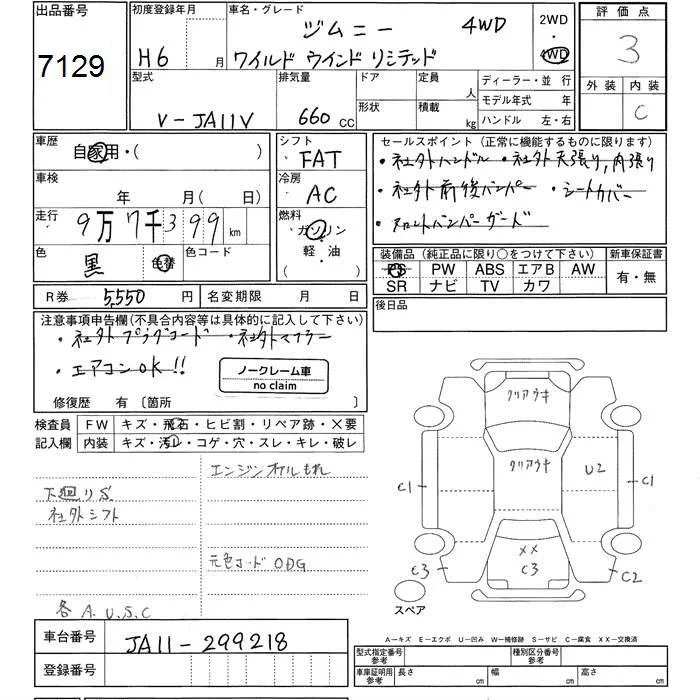 出品番号
7129
初度登録年月
H6 月
車名・グレード
ジムニー 4WD
ワイルド ウインド リミテッド
2WD
4WD
評価点
3
外装 内装
C
型式
V-JA11V
排気量
660 cc
ドア
形状
定員 人
積載 kg
ディーラー・並行
モデル年式 年
ハンドル 左・右
車歴
自家用・( )
シフト
FAT
車検
年 月( 日)
冷房
AC
走行
9万7千399 km
燃料
ガソリン
軽・油
( )
色
黒 色替
色コード
R券 5,550 円
名変期限 月 日
セールスポイント (正常に機能するものに限ります)
・社外ハンドル・社外天張り,内張り
・社外前後バンパー ・シートカバー
・フロントバンパーガード
装備品(純正品に限り○をつけて下さい)
PS PW ABS エアB AW
SR ナビ TV カワ
新車保証書
有・無
後日品
注意事項申告欄(不具合内容等は具体的に記入して下さい)
・社外プラグコード ・社外マフラー
・エアコンOK!!
ノークレーム車
no claim
修復歴 有〔箇所 〕
検査員 FW キズ・飛石・ヒビ割・リペア跡・×要
記入欄 内装 キズ・汚レ・コゲ・穴・スレ・キレ・破レ
エンジンオイルもれ
下廻りS
社外シフト
元色コード ODG
各A.U.S.C
クリアウキ
クリアウキ
U2
C1
C1
××
C3
C3
C2
スペア
車台番号 JA11-299218
登録番号
A−キズ E−エクボ U−凹み W−補修跡 S−サビ C−腐食 XX−交換済
型式指定番号
参考
種別区分番号
参考
車庫証明用
参考
長さ cm 幅 cm 高さ cm